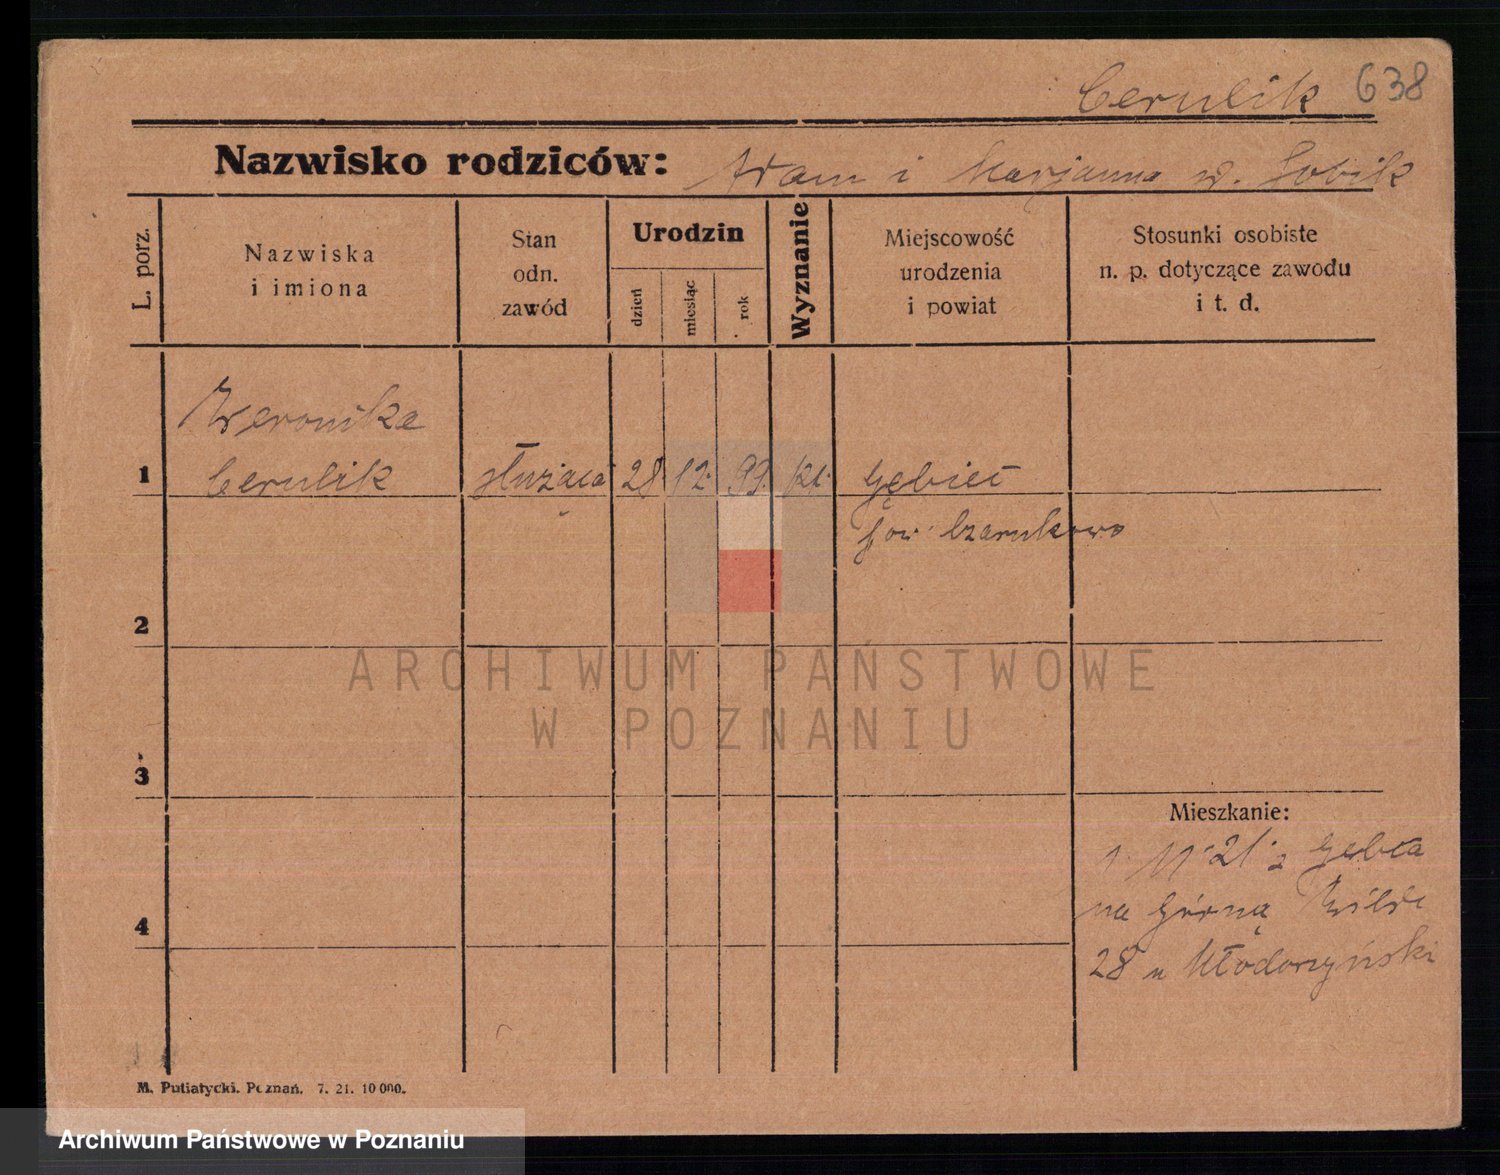 Cerulik 638
Nazwisko rodziców: Adam i Marjanna z d. Sobik
L. porz.
Nazwiska
i imiona
Stan
odn.
zawód
Urodzin
dzień
miesiąc
rok
Wyznanie
Miejscowość
urodzenia
i powiat
Stosunki osobiste
n. p. dotyczące zawodu
i t. d.
Weronika
1 Cerulik służąca 28. 12. 99. kt. Gębice
pow. Czarnkowo
2
ARCHIWUM PAŃSTWOWE
W POZNANIU
3
Mieszkanie:
1. 11. 21. z Gębca
na Górną Wildę
4
28 u Młodorzyński
M. Putiatycki. Poznań. 7. 21. 10 000.
Archiwum Państwowe w Poznaniu